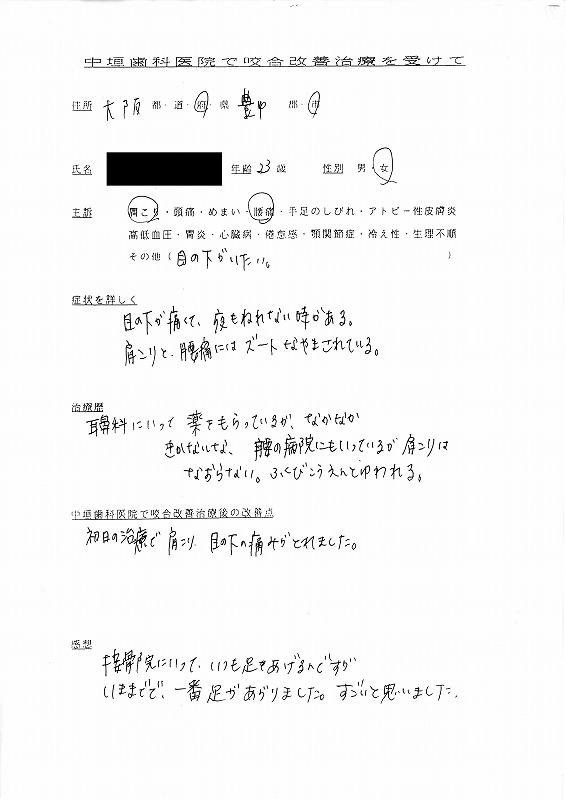 中垣歯科医院で咬合改善治療を受けて
住所 大阪 都・道・府・県 豊中 郡・市
氏名 年齢 23 歳 性別 男・女
主訴 肩こり・頭痛・めまい・腰痛・手足のしびれ・アトピー性皮膚炎
高低血圧・胃炎・心臓病・倦怠感・顎関節症・冷え性・生理不順
その他（目の下がいたい。）
症状を詳しく
目の下が痛くて、夜もねれない時がある。
肩こりと、腰痛にはズートなやまされている。
治療歴
耳鼻科にいって薬をもらっているが、なかなか
きかないしな、腰の病院にもいっているが肩こりは
なおらない。ふくびこうえんとゆわれる。
中垣歯科医院で咬合改善治療後の改善点
初日の治療で肩こり、目の下の痛みがとれました。
感想
接骨院にいって、いつも足をあげるんですが
いままでで、一番足があがりました。すごいと思いました。